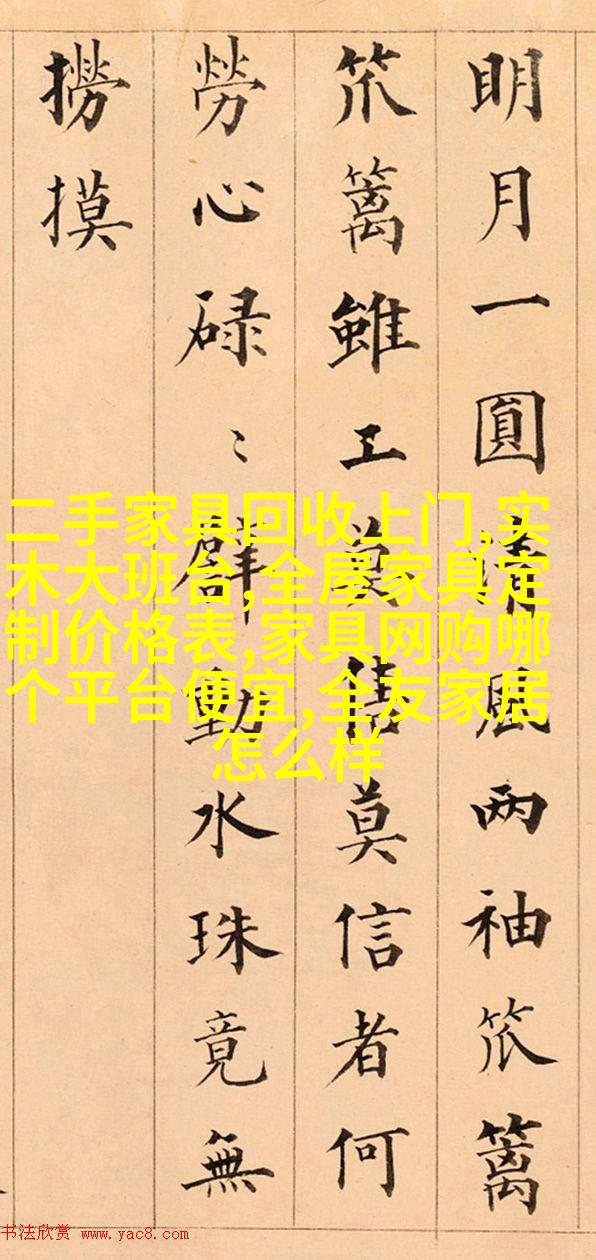 明月一圓清風两袖笊篱
笊篱雖工莫信者何
勞心碌〻動水珠竟無
撈摸
二手家具回收上门,实
木大班台,全屋家具定
制价格表,家具网购哪
个平台便宜,全友家居
怎么样
书法欣赏 www.yac8.com